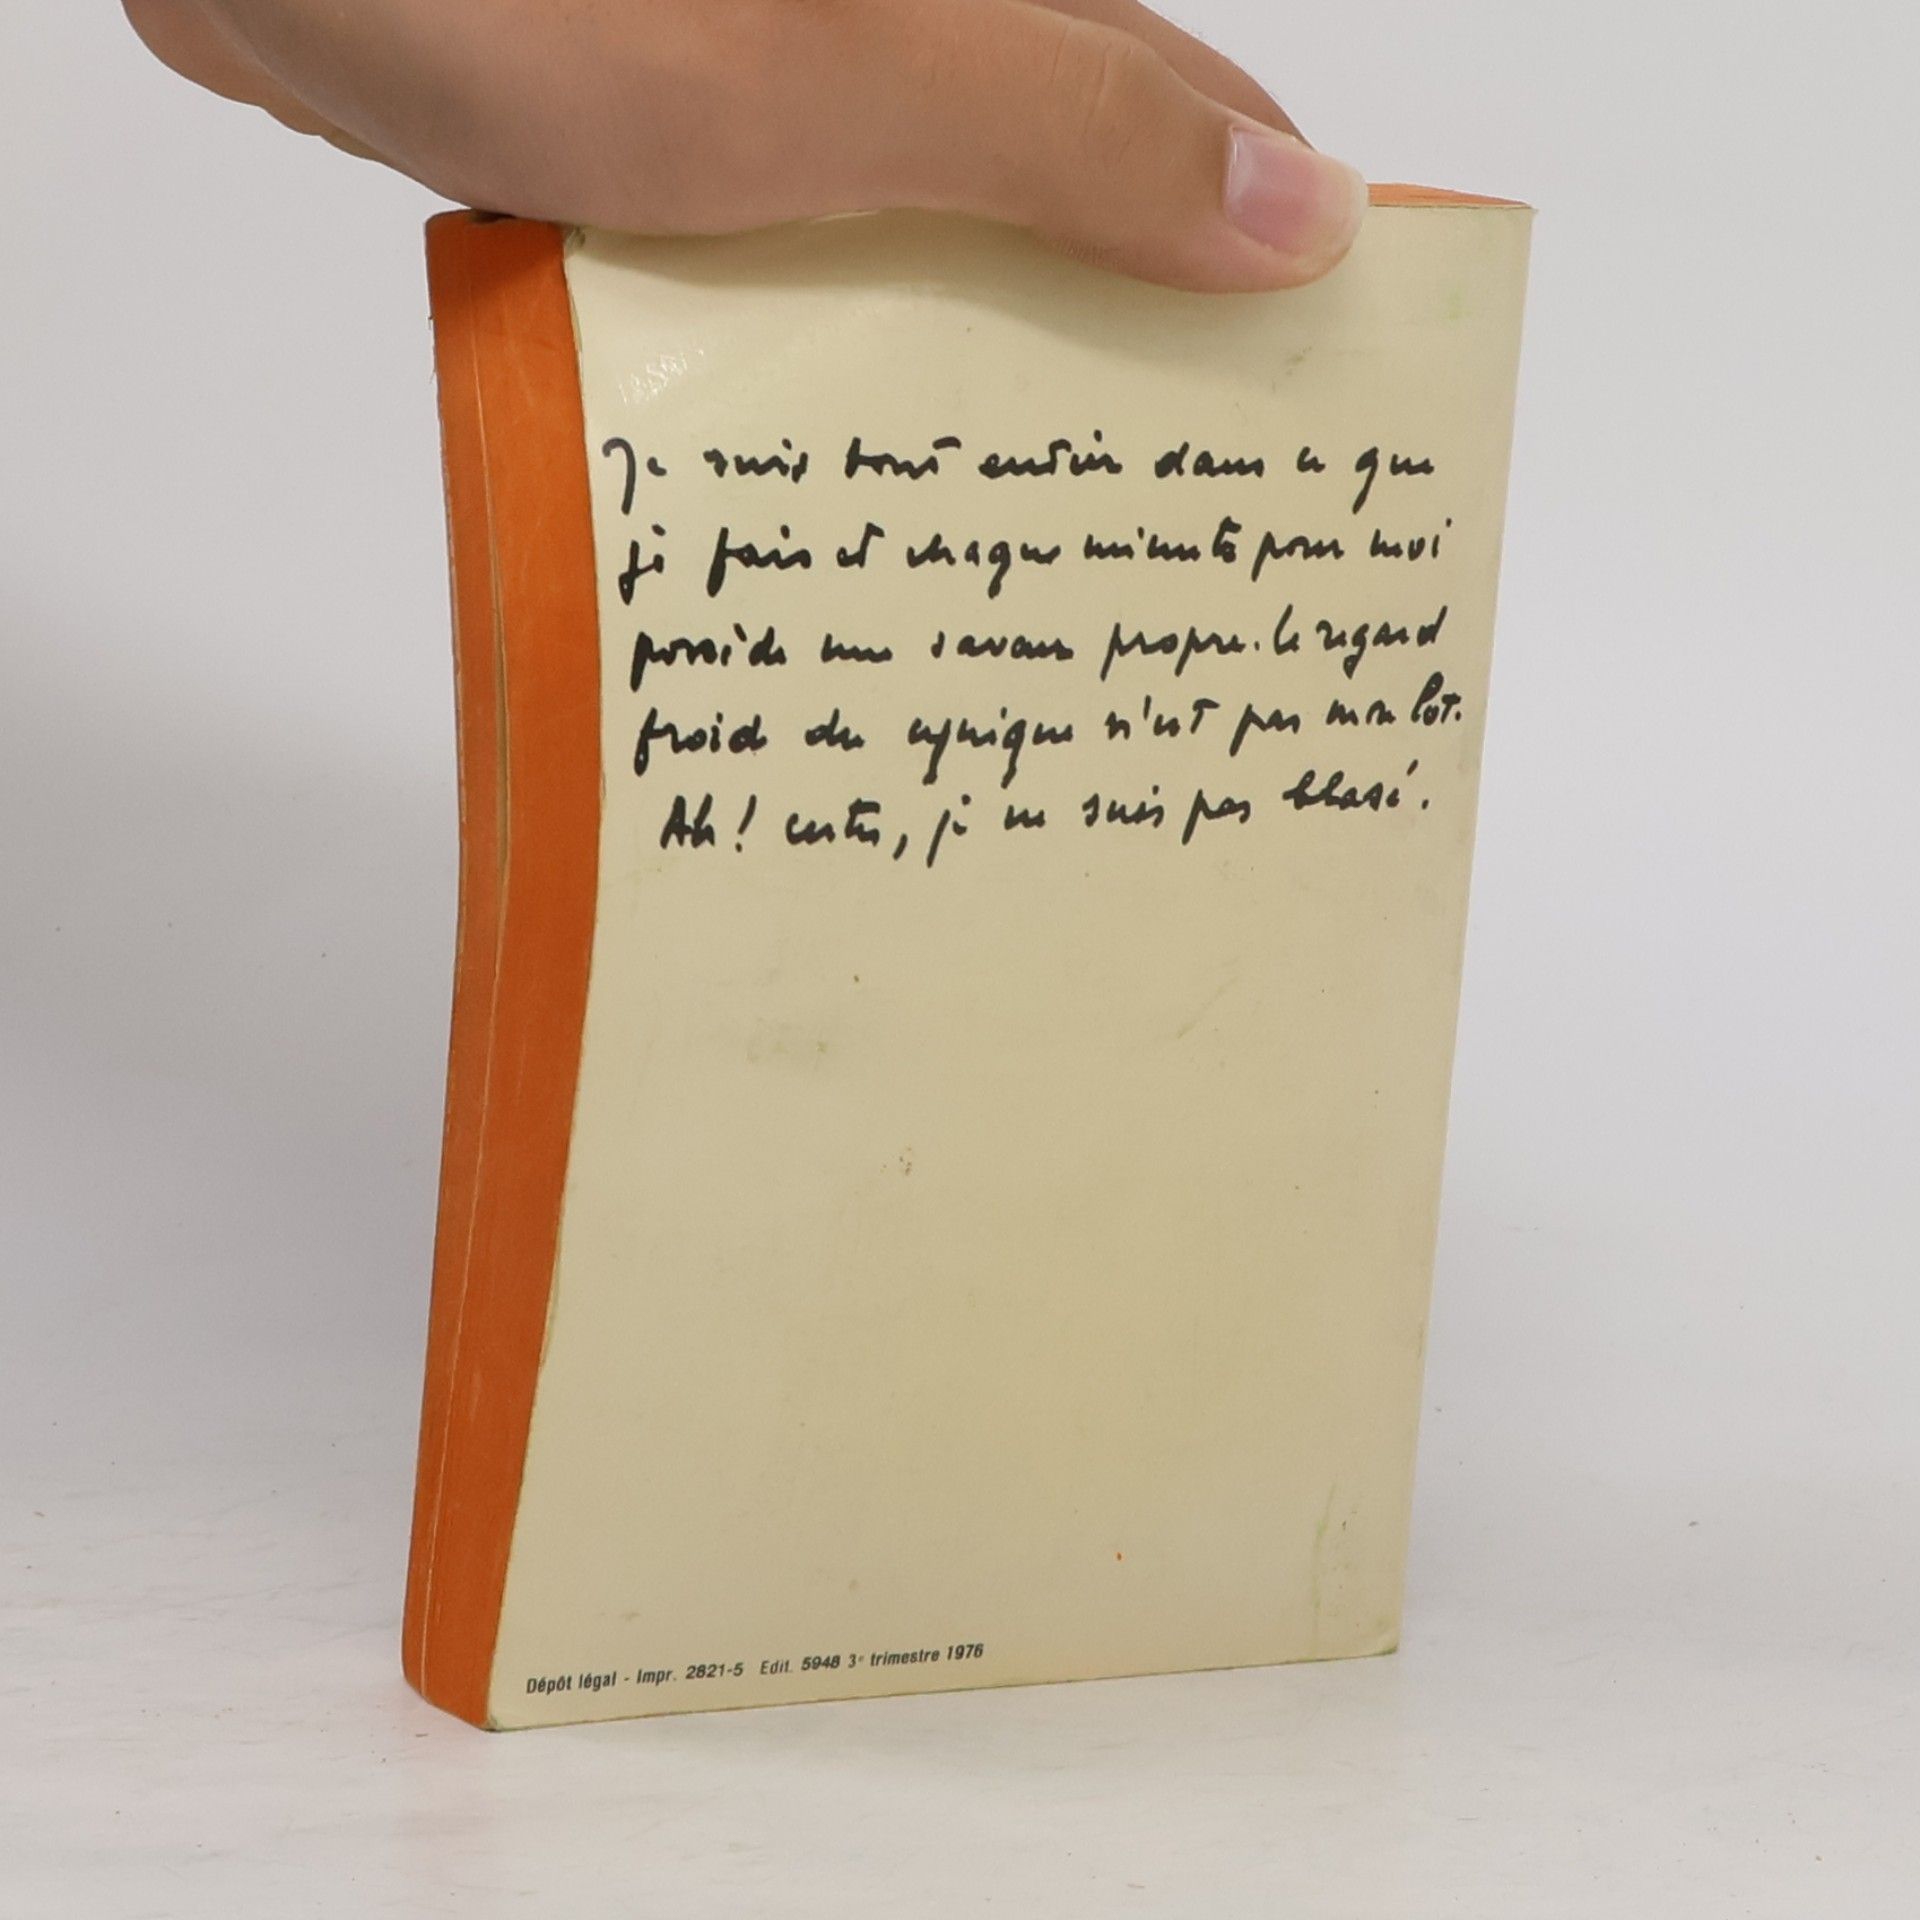 Je suis tout entier dans ce que
je fais et chaque minute pour moi
possède une saveur propre. le regard
froid du cynique n'est pas mon lot.
Ah! certes, je ne suis pas blasé.
Dépôt légal - Impr. 2821-5 Edit. 5948 3e trimestre 1976